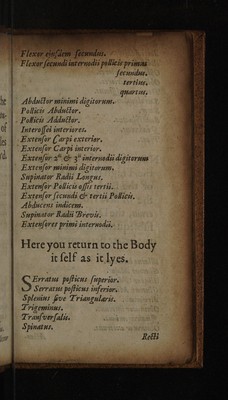 Flexor ejusdem secundus.
Flexor secundi internodii pollicis primus
secundus.
tertius.
quartus.
Abductor minimi digitorum.
Pollicis Abductor.
Pollicis Adductor.
Interossei interiores.
Extensor Carpi exterior.
Extensor Carpi interior.
Extensor 2ⁱ & 3ⁱ internodii digitorum
Extensor minimi digitorum.
Supinator Radii Longus.
Extensor Pollicis ossis tertii.
Extensor secundi & tertii Pollicis.
Abducens indicem.
Supinator Radii Brevis.
Extensores primi internodii.
Here you return to the Body
it self as it lyes.
SErratus posticus superior.
Serratus posticus inferior.
Splenius sive Triangularis.
Trigeminus.
Transversalis.
Spinatus.
Recti